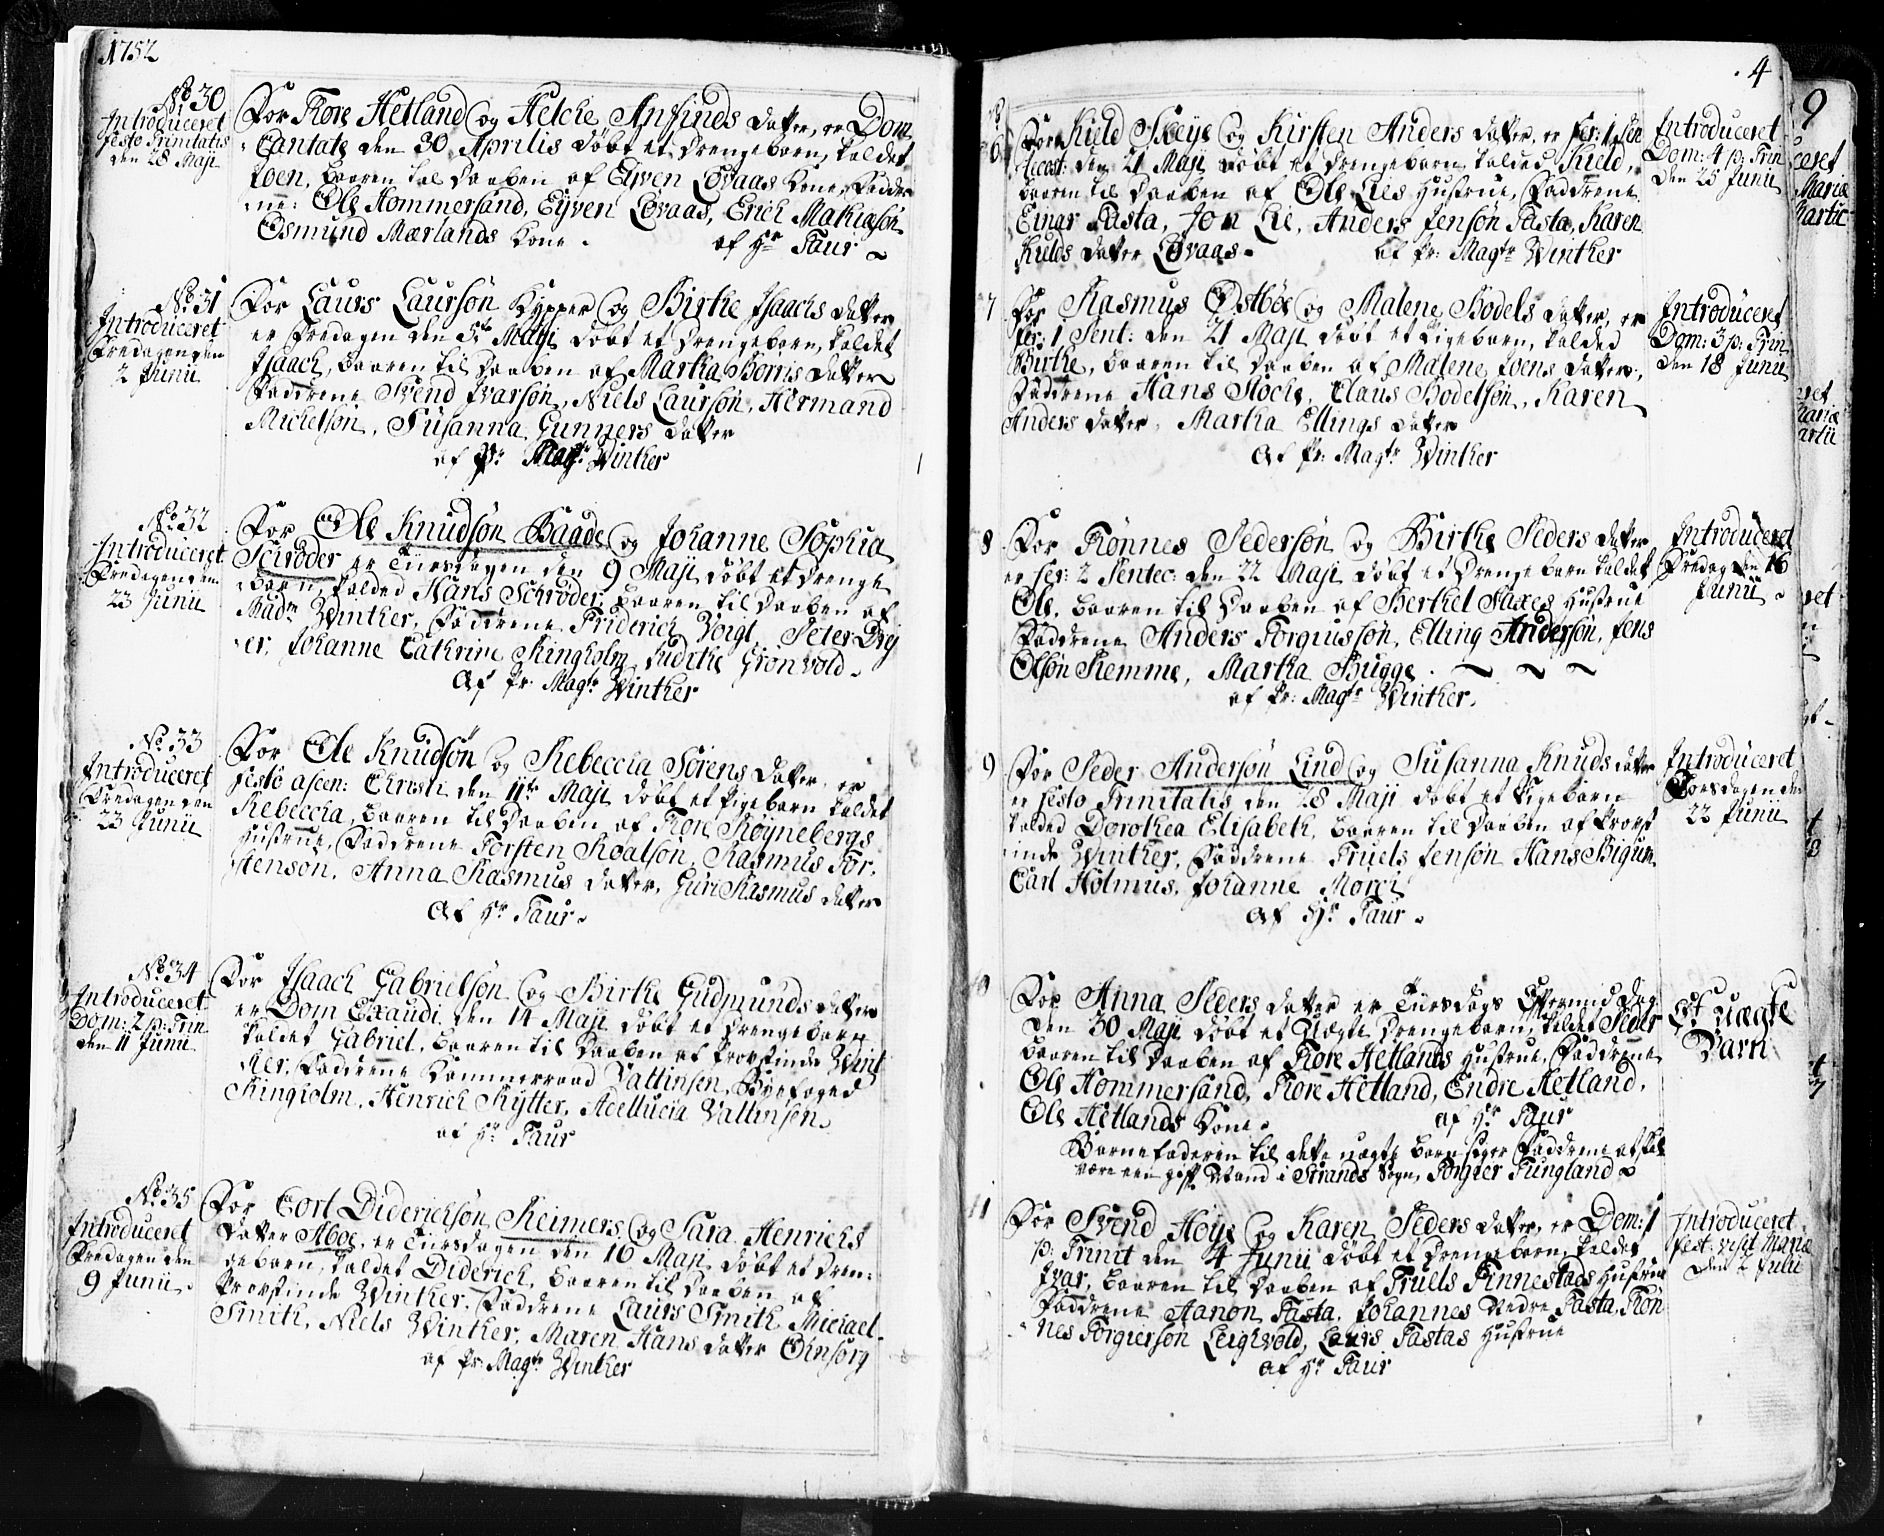 1752
No 30
Introduceret
festo Trinitatis
den 28 Maji
For Tore Hetland og Helche Ansfinds datter, er Dom
Cantate den 30 Aprilis døbt et drengebarn, kaldet
Joen, baaren til daaben af Eyven Løvaas kone, Faddre
ne: Ole Hommersand, Eyven Løvaas, Erich Mathiasøn
Osmund Mærlands kone. af Hr Faur
No 31
Introduceret
Fredagen den
2 Junii
For Laurs Laursøn Kypper og Birthe Isaachs datter
er Fredagen den 5te Maji døbt et drengebarn, kaldet
Isaach, baaren til daaben af Martha Børris datter
Faddrene Svend Ivarsøn, Niels Laursøn, Hermand
Michelsøn, Susanna Gunners datter
af Pr: Magtr Winther
No 32
Introduceret
Fredagen den
23 Junii
For Ole Knudsøn Baade og Johanne Sophia
Schrøder er Tiirsdagen den 9 Maji døbt et drenge
barn, kalded Hans Schrøder, baaren til daaben af
Madm Winther, Faddrene Friderich Voigt, Peter Drej
er, Johanne Cathrine Ringholm, Judithe Grønvold.
Af Pr: Magtr Winther
No 33
Introduceret
Fredagen den
23 Junii
For Ole Knudsøn og Rebeccia Sørens datter, er
festo ascen: Christi den 11te Maji døbt et pigebarn kaldet
Rebeccia, baaren til daaben af Tore Røynebergs
Hustrue, Faddrene Torsten Roalsøn, Rasmus Tor,
stensøn, Anna Rasmus datter, Guri Rasmus datter
Af Hr Faur.
No 34
Introduceret
Dom: 2 p: Trin
den 11 Junii
For Isaach Gabrielsøn og Birthe Gudmunds datter
er Dom Exaudi, den 14 Maji døbt et drengebarn
kaldet Gabriel, baaren til daaben af Provstinde Wint
her, Faddrene Kammerraad Valtinsen, Byefoged
Ringholm, Henrich Rytter, Adellucia Valtinsen.
af Hr Faur
No 35
Introduceret
Fredagen den
9 Junii.
For Cort Diderichsøn Reimers og Sara Henrichs
datter Aboe, er Tiirsdagen den 16 Maji døbt et dren:
gebarn, kaldet Diderich, baaren til daaben af
Provstinde Winther, Faddrene Laurs Smith, Michael
Smith, Niels Winther, Maren Hans datter Øinsørg
af Pr: Magtr Winther
4
6
For Kield Skeye og Kirsten Anders datter, er fer: 1 Pen
tecost: den 21 Maji døbt et drengebarn, kaldet Kield,
baaren til daaben af Ole Lies Hustrue, Faddrene
Einar Tasta, Jon Lie, Anders Jensøn Tasta, Karen
Kields datter Løvaas. af Pr: Magtr Winther
Introduceret
Dom: 4 p: Trin
den 25 Junii
7
For Rasmus Østbøe og Malene Bodels datter, er
fer: 1 Pent: den 21 Maji døbt et Pigebarn, kalded
Birthe, baaren til daaben af Malene Joens datter,
Faddrene Hans Stoche, Claus Bodelsøn, Karen
Anders datter, Martha Ellings datter
Af Pr: Magtr Winther
Introduceret
Dom: 3 p: Trin
den 18 Junii
8
For Tønnes Pedersøn og Birthe Peders datter
er fer: 2 Pentec: den 22 Maji døbt et drenge barn kaldet
Ole, baaren til daaben af Berthel Saxes Hustrue
Faddrene Anders Torgiussøn, Elling Andersøn, Jens
Olsøn Remme, Martha Bugge.
af Pr: Magtr Winther.
Introduceret
Fredag den 16
Junii
9
For Peder Andersøn Lind og Susanna Knuds datter
er festo Trinitatis den 28 Maji døbt et Pigebarn
kaldet Dorothea Elisabeth, baaren til daaben af Provst
inde Winther, Faddrene Truels Jensøn Hans Bigum
Carl Holmus, Johanne Morch
Af Hr Faur.
Introduceret
Torsdagen den
22 Junii
For Anna Peders datter er Tiirsdags Eftermid dag
den 30 Maji døbt et Uægte drengebarn, kaldet Peder
baaren til daaben af Tore Hetlands Hustrue, Faddrene
Ole Hommersand, Tore Hetland, Endre Hetland,
Ole Hetlands kone. af Hr Faur
Barnefaderen til dette uægte barn siger Faddrene at skal
være een gift Mand i Strands Sogn, Torgier Tungland
Et uægte
Barn
11
For Svend Høye og Karen Peders datter, er Dom: 1
p: Trinit den 4 Junii døbt et drengebarn, kaldet
Ivar, baaren til daaben af Truels Finnestads Hustrue
Faddrene Hanon Tasta, Johannes Nedre Tasta, Tøn
nes Torgiersøn Leighvold, Laurs Tastas Hustrue
af Hr Faur
Introduceret
fest: visit Mariæ
den 2 Julii
9